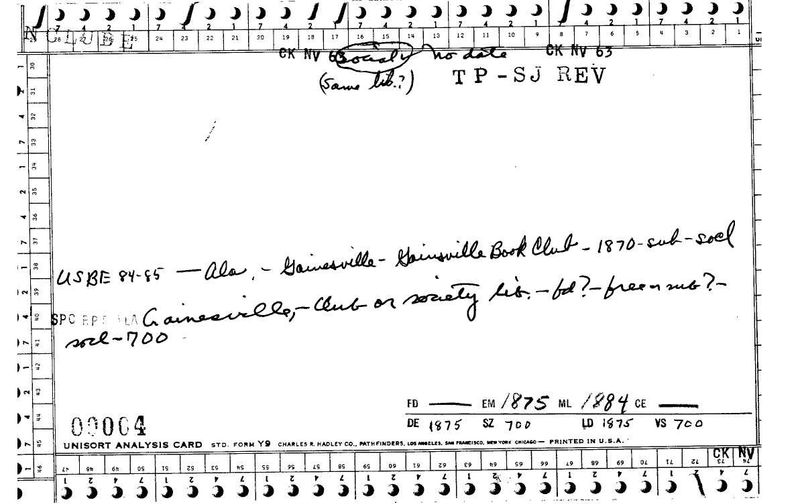 N CLUBE
CK NV 63 Society no date CK NV 63
(same lib.?) TP-SJ REV
USBE 84-85 — Ala. - Gainesville - Gainsville Book Club - 1870 - sub - socl
SPC REP ALA Gainesville, - Club or society lib. - fd? - free or sub? -
socl - 700
FD — EM 1875 ML 1884 CE —
DE 1875 SZ 700 LD 1875 VS 700
00004
UNISORT ANALYSIS CARD STD. FORM Y9 CHARLES R. HADLEY CO., PATHFINDERS, LOS ANGELES, SAN FRANCISCO, NEW YORK CHICAGO — PRINTED IN U.S.A.
CK NV